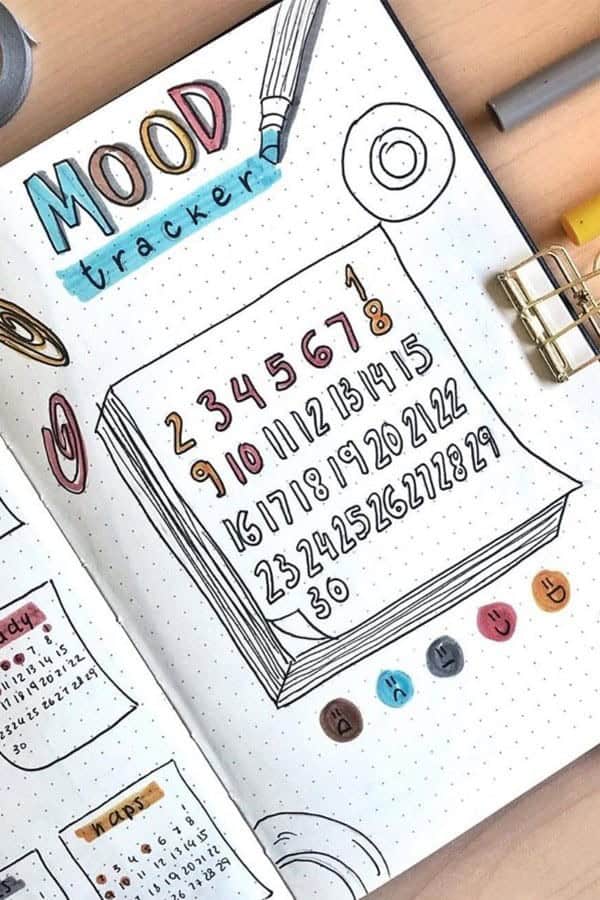 MOOD
tracker
1
2 3 4 5 6 7 8
9 10 11 12 13 14 15
16 17 18 19 20 21 22
23 24 25 26 27 28 29
30
7 8
11 12 13 14 15
17 18 19 20 21 22
23 24 25 26 27 28 29
30
naps
1
2 3 4 5 6 7 8
9 10 11 12 13 14 15